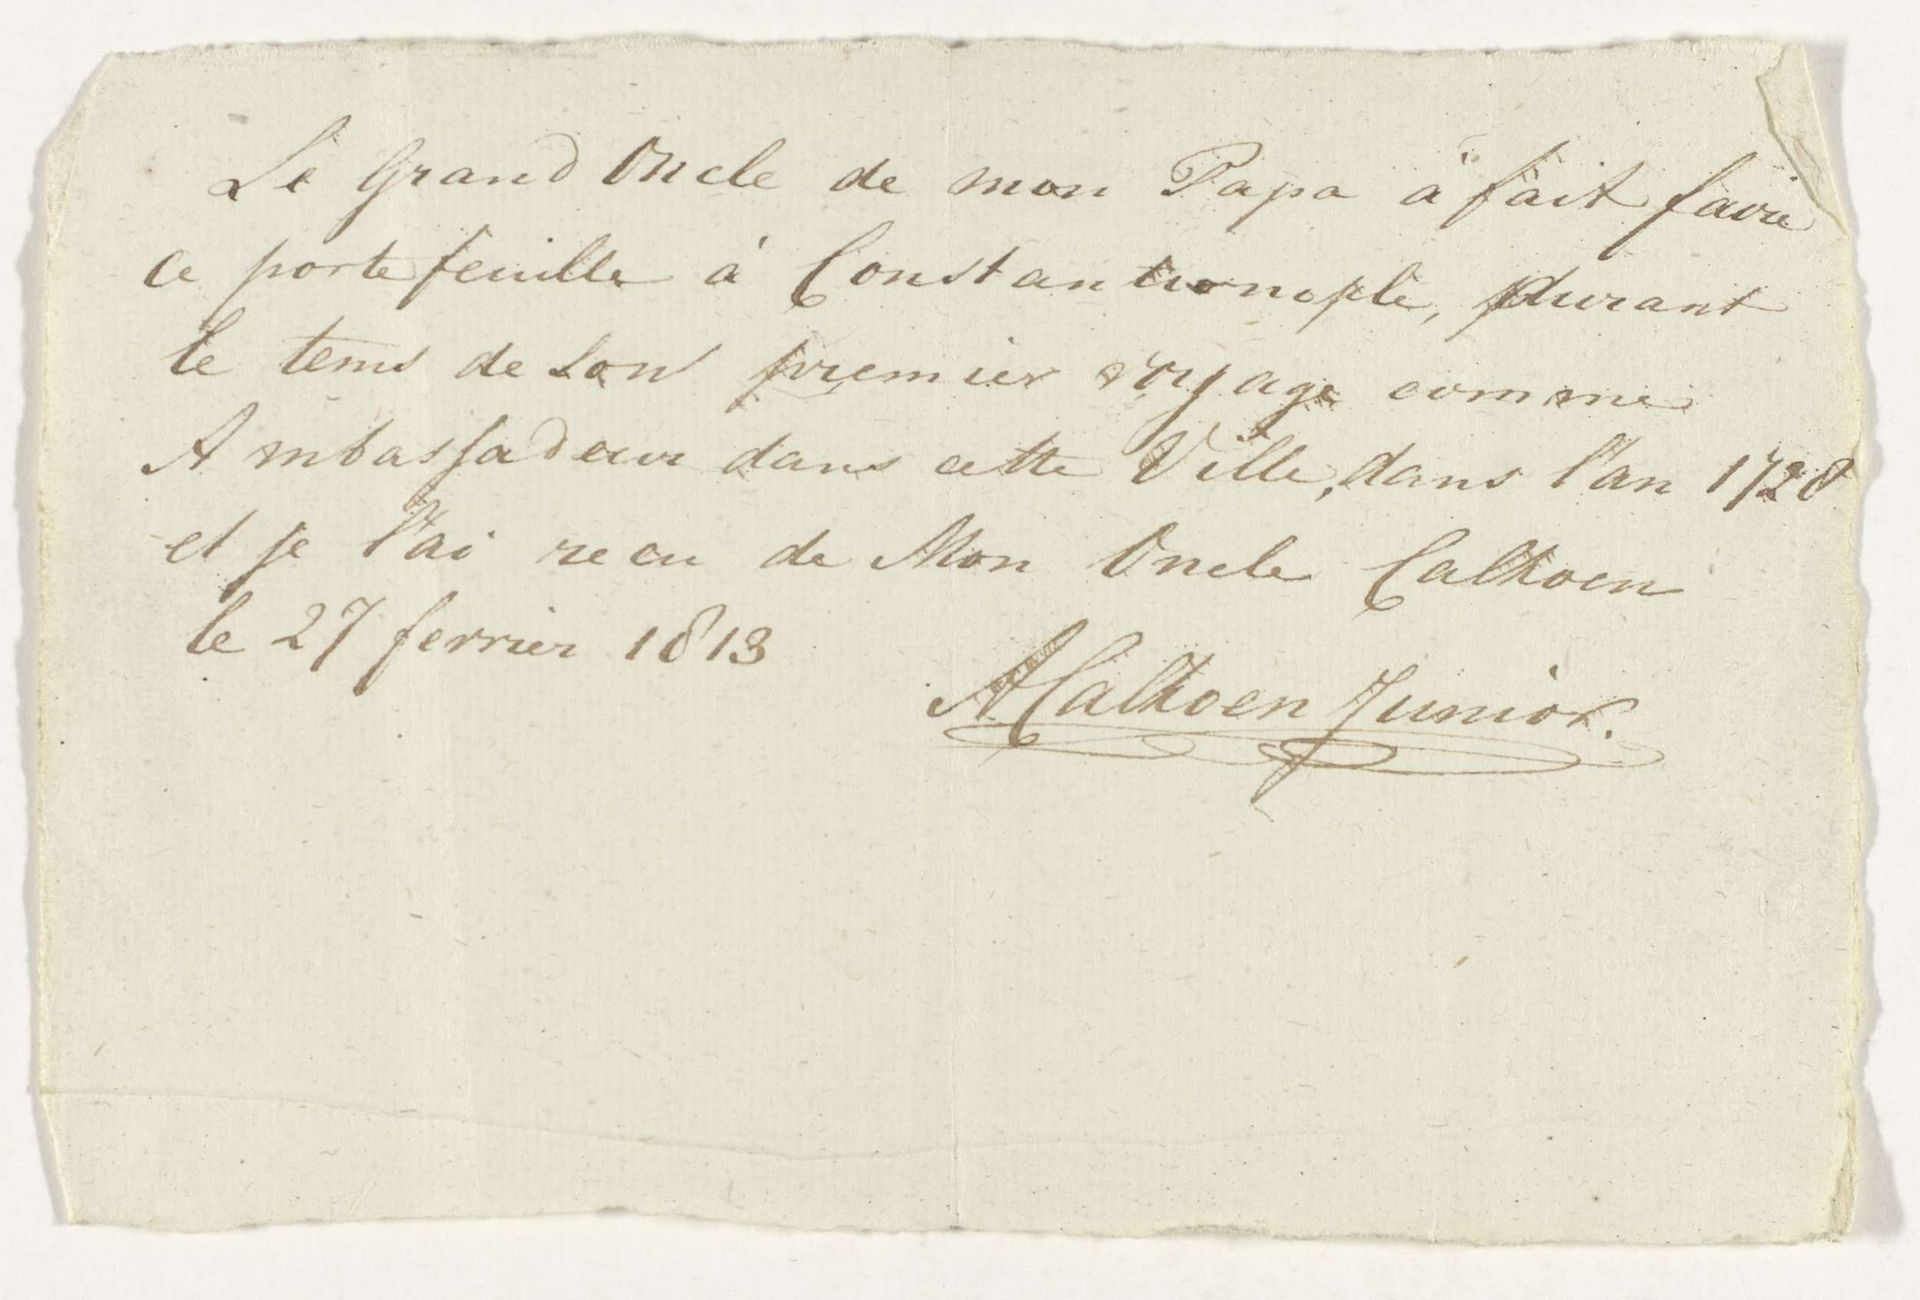 Le Grand Oncle de mon Papa à fait faire
ce porte feuille à Constantionople, durant
le tems de son premier voyage comme
Ambassadeur dans cette Ville, dans l'an 1728
et je l'ai recu de Mon Oncle Calkoen
le 27 fevrier 1813
A Calkoen Junior.